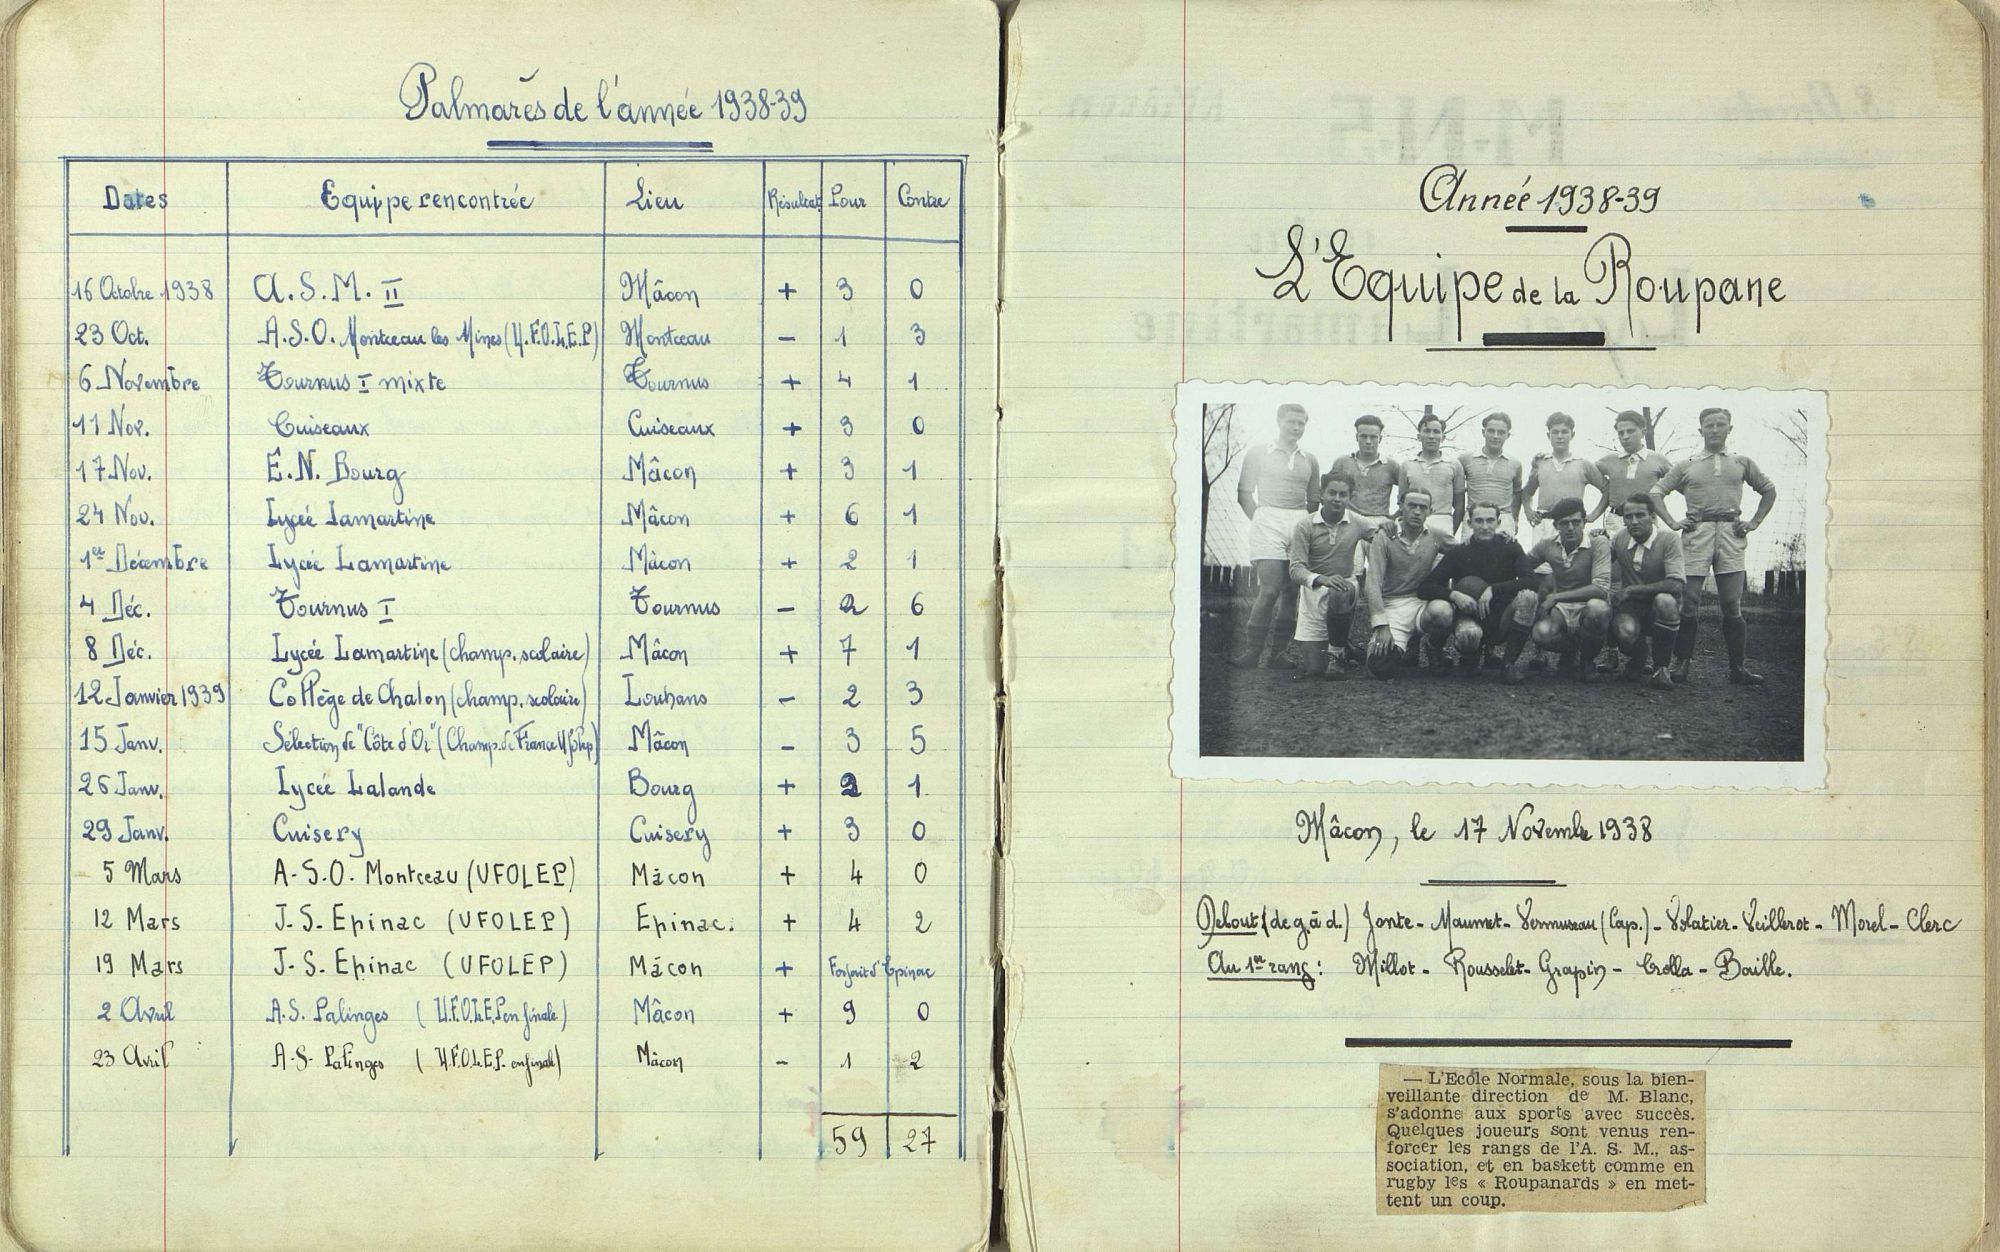 Palmarès de l'année 1938-39
Dates Equipe rencontrée Lieu Résultat Pour Contre
16 Octobre 1938 A.S.M. II Mâcon + 3 0
23 Oct. A.S.O. Montceau les Mines (U.F.O.L.E.P) Montceau - 1 3
6 Novembre Tournus I mixte Tournus + 4 1
11 Nov. Cuiseaux Cuiseaux + 3 0
17 Nov. E.N. Bourg Mâcon + 3 1
24 Nov. Lycée Lamartine Mâcon + 6 1
1er Décembre Lycée Lamartine Mâcon + 2 1
4 Déc. Tournus I Tournus - 2 6
8 Déc. Lycée Lamartine (champ. scolaire) Mâcon + 7 1
12 Janvier 1939 Collège de Chalon (champ. scolaire) Louhans - 2 3
15 Janv. Sélection de "Côte d'Or" (Champ. de France Ufolep) Mâcon - 3 5
26 Janv. Lycée Lalande Bourg + 2 1
29 Janv. Cuisery Cuisery + 3 0
5 Mars A.S.O. Montceau (UFOLEP) Mâcon + 4 0
12 Mars J.S. Epinac (UFOLEP) Epinac. + 4 2
19 Mars J.S. Epinac (UFOLEP) Mâcon + Forfait d'Epinac
2 Avril A.S. Palinges (U.F.O.L.E.P en finale) Mâcon + 9 0
23 Avril A.S. Palinges (U.F.O.L.E.P. en finale) Mâcon - 1 2
59 27
Année 1938-39
L'Equipe de la Roupane
Mâcon, le 17 Novembre 1938
Debout (de g. à d.) Jonte - Maumet - Vermuseau (Cap.) - Volatier - Veillerot - Morel - Clerc
Au 1er rang : Millot - Rousselet - Grapin - Crolla - Baille.
— L'Ecole Normale, sous la bien-
veillante direction de M. Blanc,
s'adonne aux sports avec succès.
Quelques joueurs sont venus ren-
forcer les rangs de l'A. S. M., as-
sociation, et en baskett comme en
rugby les « Roupanards » en met-
tent un coup.